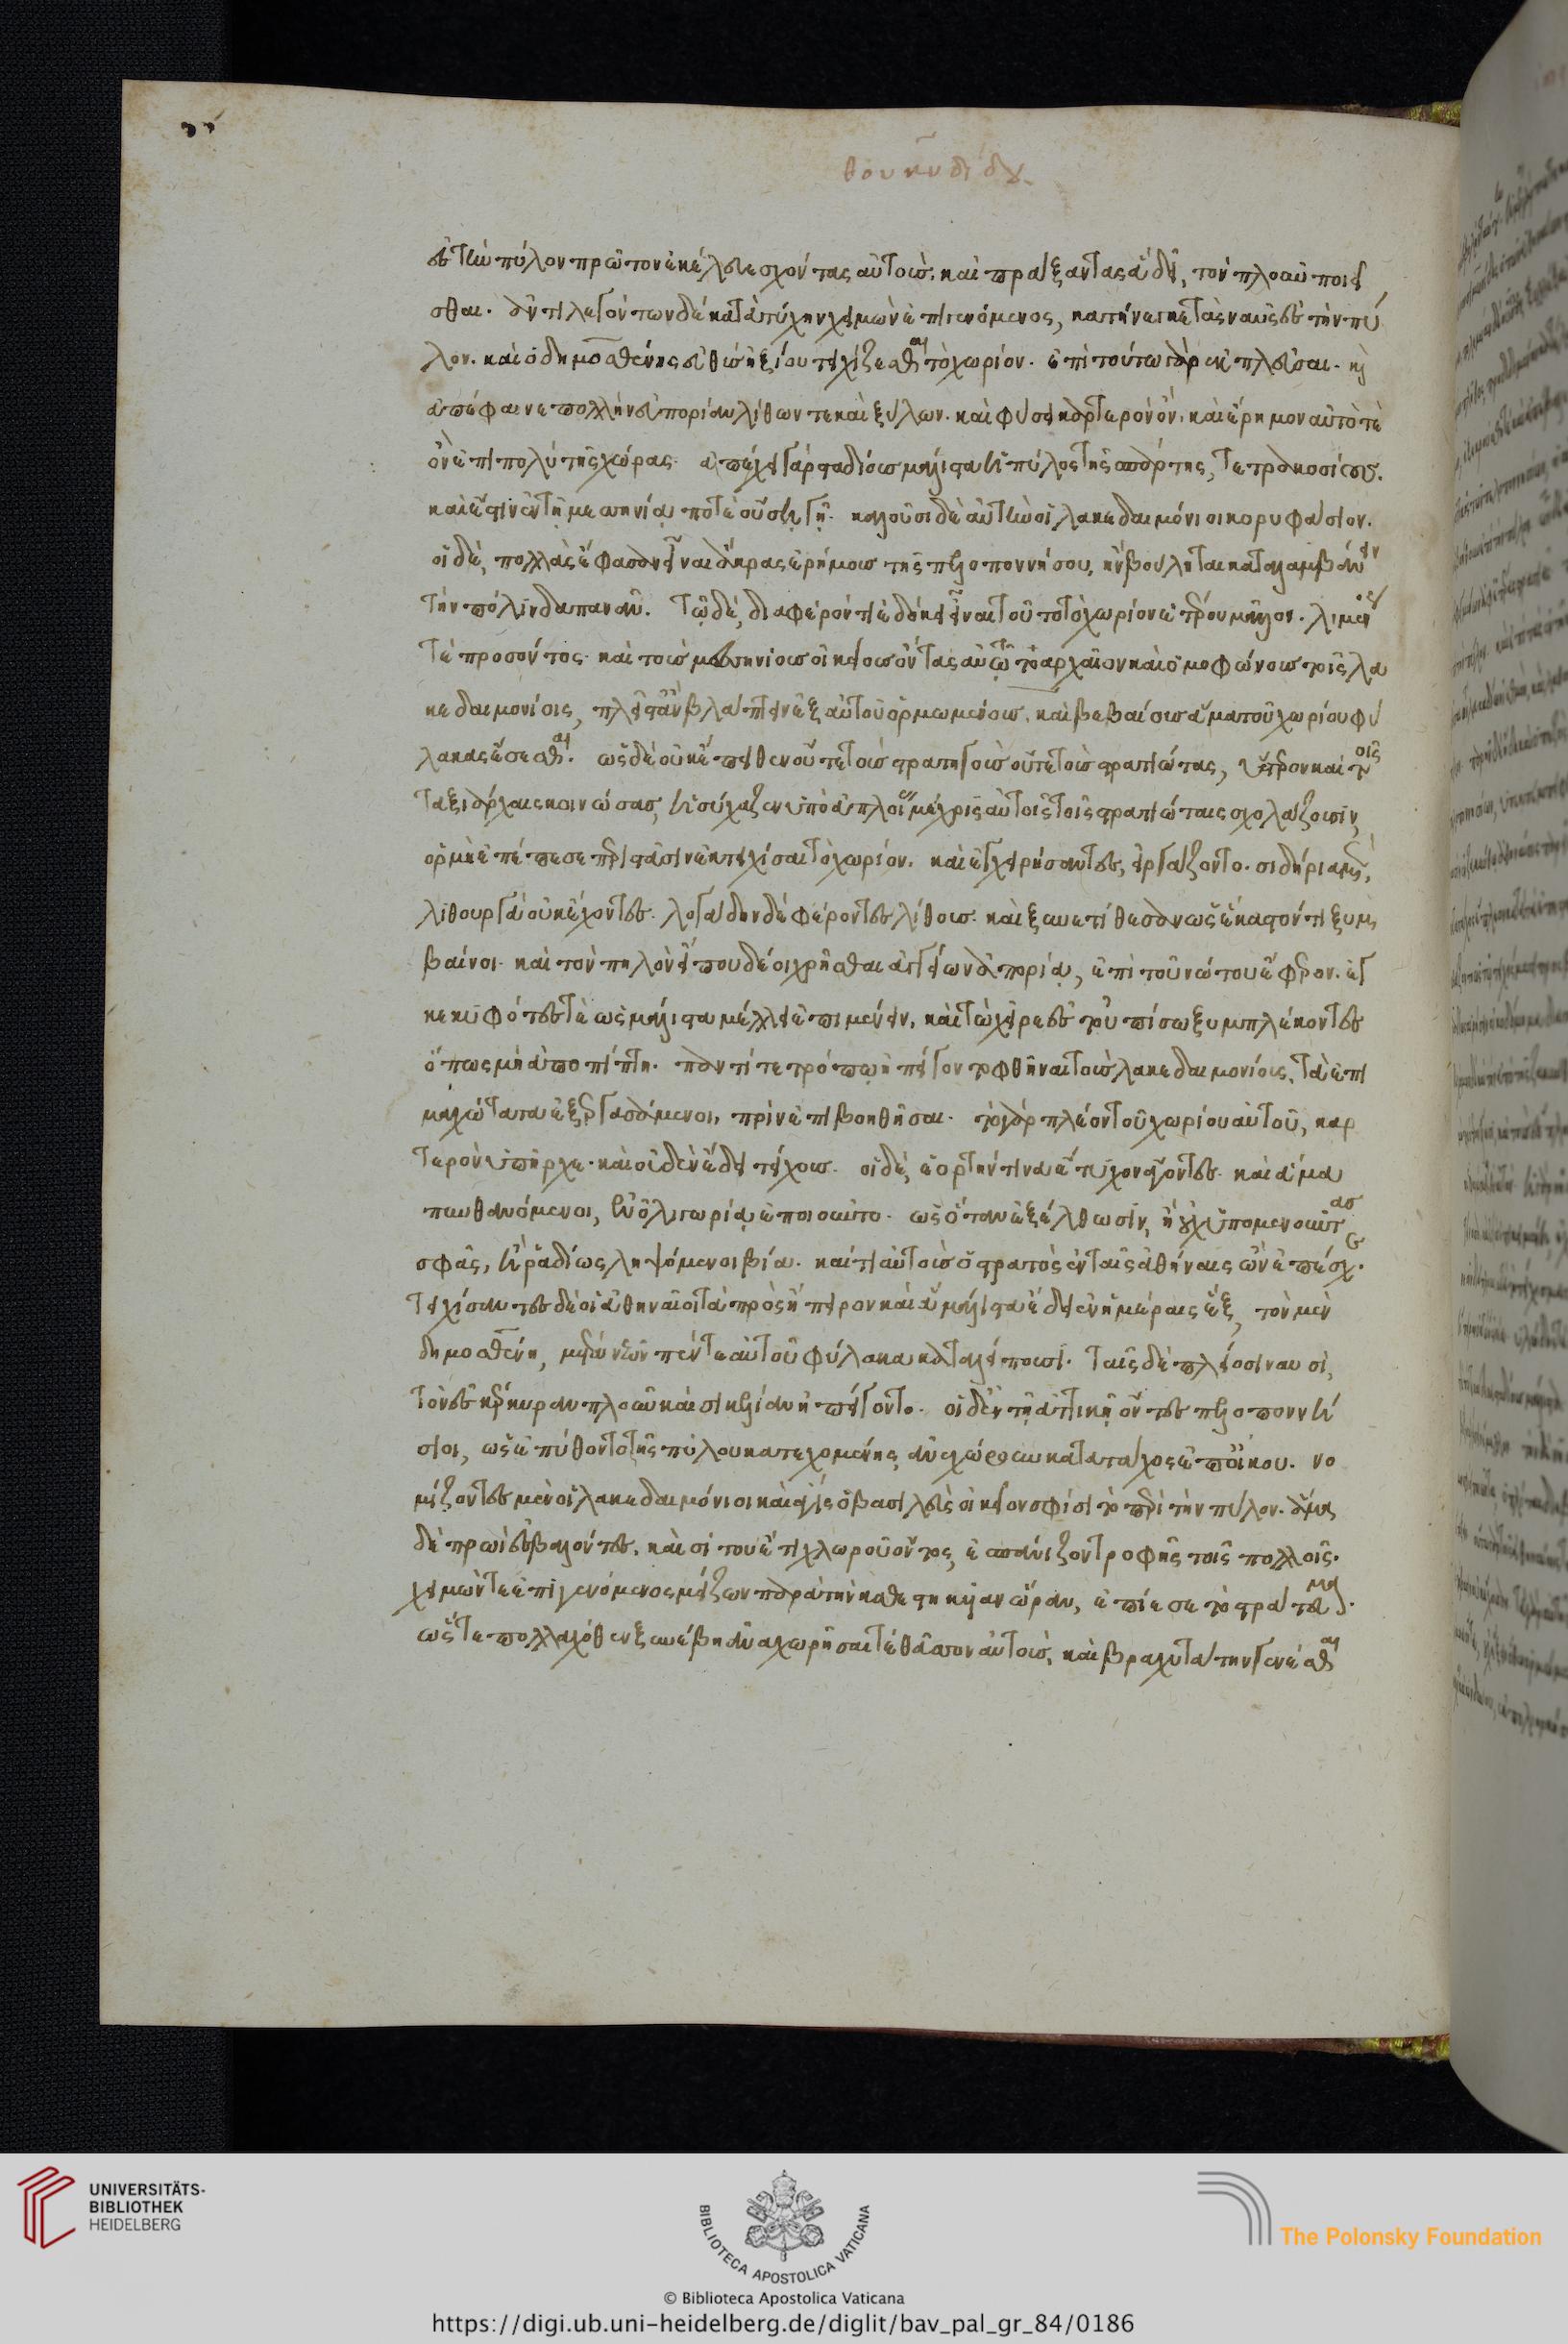 θουκυδίδου
ἐς τὴν πύλον πρῶτον ἐκέλευε σχόντας αὐτοὺς καὶ πράξαντας ἃ δεῖ, τὸν πλοῦν ποιεῖ
σθαι. ἀντιλεγόντων δὲ κατὰ τύχην χειμὼν ἐπιγενόμενος, κατήνεγκε τὰς ναῦς ἐς τὴν πύ
λον. καὶ ὁ δημοσθένης εὐθὺς ἠξίου τειχίζεσθαι τὸ χωρίον. ἐπὶ τούτω γὰρ ἐκπλεῦσαι. καὶ
ἀπέφαινε πολλὴν εὐπορίαν λίθων τε καὶ ξύλων. καὶ φύσει καρτερὸν ὄν. καὶ ἔρημον αὐτό τε
ὂν ἐπὶ πολὺ τῆς χώρας. ἀπέχει γὰρ σταδίους μάλιστα ἡ πύλος τῆς σπάρτης, τετρακοσίους.
καὶ ἔστιν ἐν τῆ μεσσηνία ποτὲ οὔση γῆ. καλοῦσι δὲ αὐτὴν οἱ λακεδαιμόνιοι κορυφάσιον.
οἱ δὲ, πολλὰς ἔφασαν εἶναι ἄκρας ἐρήμους τῆς πελοποννήσου, ἢν βούληται καταλαμβάνων
τὴν πόλιν δαπανᾶν. τῶ δὲ, διάφερόν τι ἐδόκει εἶναι τοῦτο τὸ χωρίον ἑτέρου μᾶλλον. λιμένος
τὲ προσόντος. καὶ τοὺς μεσσηνίους οἰκείους ὄντας αὐτῶ τὸ ἀρχαῖον καὶ ὁμοφώνους τοῖς λα
κεδαιμονίοις, πλεῖστ' ἂν βλάπτειν ἐξ αὐτοῦ ὁρμωμένους. καὶ βεβαίους ἅμα τοῦ χωρίου φύ
λακας ἔσεσθαι. ὡς δὲ οὐκ ἔπειθεν οὔτε τοὺς στρατηγοὺς οὔτε τοὺς στρατιώτας, ὕστερον καὶ τοῖς
ταξιάρχαις κοινώσας, ἡσύχαζεν ὑπὸ ἀπλοίας μέχρις αὐτοῖς τοῖς στρατιώταις σχολάζουσιν,
ὁρμὴ ἐπέπεσε περιστᾶσιν ἐκτειχίσαι τὸ χωρίον. καὶ ἐγχειρήσαντες, εἰργάζοντο. σιδήρια μὲν
λιθουργὰ οὐκ ἔχοντες. λογάδην δὲ φέροντες λίθους. καὶ ξυνετίθεσαν ὡς ἕκαστόν τι ξυμ
βαίνοι. καὶ τὸν πηλὸν εἴ που δέοι χρῆσθαι ἀγγείων ἀπορία, ἐπὶ τοῦ νώτου ἔφερον. ἐγ
κεκυφότες τὲ ὡς μάλιστα μέλλει ἐπιμένειν, καὶ τὼ χεῖρε ἐς τοὐπίσω ξυμπλέκοντες
ὅπως μὴ ἀποπίπτη. παντί τε τρόπω ἠπείγοντο φθῆναι τοὺς λακεδαιμονίους, τὰ ἐπι
μαχώτατα ἐξεργασάμενοι, πρὶν ἐπιβοηθῆσαι. τὸ γὰρ πλέον τοῦ χωρίου αὐτοῦ, καρ
τερὸν ὑπῆρχε. καὶ οὐδὲν ἔδει τείχους. οἱ δὲ, ἑορτήν τινα ἔτυχον ἄγοντες. καὶ ἅμα
πυνθανόμενοι, ἐν ὀλιγωρία ἐποιοῦντο. ὡς ὅταν ἐξέλθωσιν, ἢ οὐχ ὑπομενοῦντας
σφᾶς, ἢ ῥαδίως ληψόμενοι βία. καί τι αὐτοὺς ὁ στρατὸς ἐν ταῖς ἀθήναις ὢν ἐπέσχε.
τειχίσαντες δὲ οἱ ἀθηναῖοι τὰ πρὸς ἤπειρον καὶ ἃ μάλιστα ἔδει ἐν ἡμέραις ἕξ, τὸν μὲν
δημοσθένη, μετὰ νεῶν πέντε αὐτοῦ φύλακα καταλείπουσι. ταῖς δὲ πλείοσι ναυσὶ,
τὸν ἐς κέρκυραν πλοῦν καὶ σικελίαν ἠπείγοντο. οἱ δ' ἐν τῆ ἀττικῆ ὄντες πελοποννή
σιοι, ὡς ἐπύθοντο τῆς πύλου κατεχομένης, ἀνεχώρουν κατὰ τάχος ἐπ' οἴκου. νο
μίζοντες μὲν οἱ λακεδαιμόνιοι καὶ ἆγις ὁ βασιλεὺς οἰκεῖον σφίσι τὸ περὶ τὴν πύλον. ἅμα
δὲ πρωῒ ἐσβαλόντες. καὶ σίτου ἔτι χλωροῦ ὄντος, ἐσπάνιζον τροφῆς τοῖς πολλοῖς.
χειμών τε ἐπιγενόμενος μείζων παρὰ τὴν καθεστηκυῖαν ὥραν, ἐπίεσε τὸ στράτευμα.
ὥστε πολλαχόθεν ξυνέβη ἀναχωρῆσαί τε θᾶσσον αὐτοὺς, καὶ βραχυτάτην γενέσθαι
UNIVERSITÄTS-
BIBLIOTHEK
HEIDELBERG
BIBLIOTECA APOSTOLICA VATICANA
The Polonsky Foundation
© Biblioteca Apostolica Vaticana
https://digi.ub.uni-heidelberg.de/diglit/bav_pal_gr_84/0186